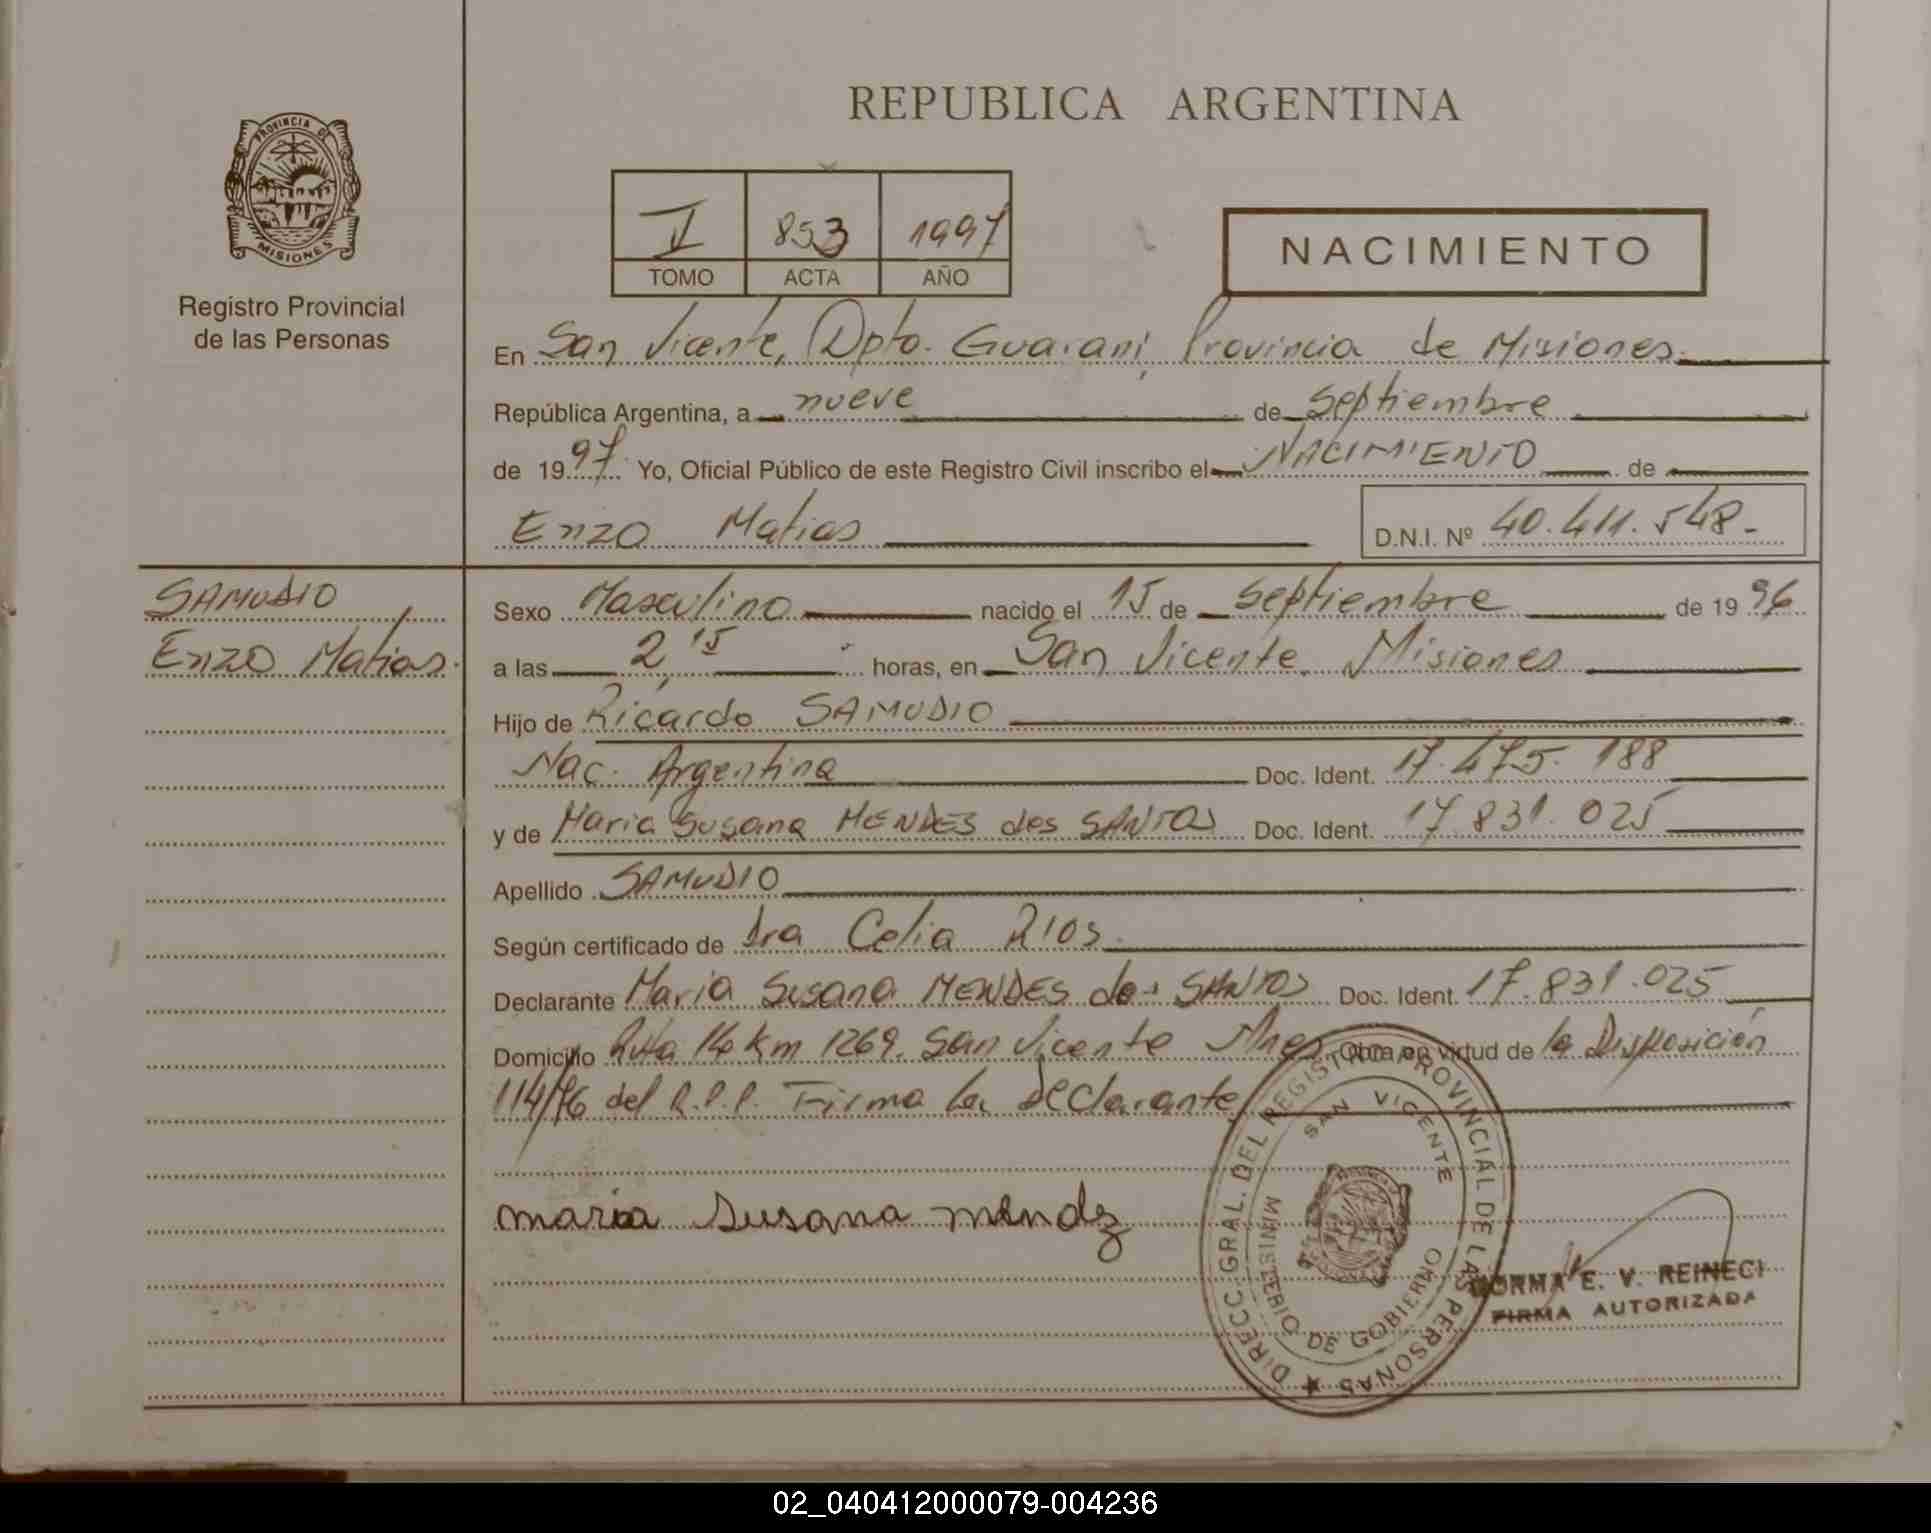 REPUBLICA ARGENTINA
PROVINCIA DE
MISIONES
Registro Provincial
de las Personas
V 853 1997
TOMO ACTA AÑO
NACIMIENTO
En San Vicente, Dpto. Guaraní, Provincia de Misiones.
República Argentina, a nueve de Septiembre
de 1997 Yo, Oficial Público de este Registro Civil inscribo el NACIMIENTO de
Enzo Matias D.N.I. Nº 40.411.548.-
SAMUDIO
Enzo Matias.
Sexo Masculino nacido el 15 de Septiembre de 1996
a las 2,15 horas, en San Vicente, Misiones
Hijo de Ricardo SAMUDIO
Nac. Argentina Doc. Ident. 17.475.188
y de Maria Susana MENDES dos SANTOS Doc. Ident. 17.831.025
Apellido SAMUDIO
Según certificado de Dra Celia RIOS.
Declarante Maria Susana MENDES dos SANTOS Doc. Ident. 17.831.025
Domicilio Ruta 14 Km 1269. San Vicente Mnes. Obra en virtud de la Disposición
114/96 del R.P.P. Firma la declarante
maria susana mendz
DIRECC. GRAL. DEL REGISTRO PROVINCIAL DE LAS PERSONAS
SAN VICENTE
MINISTERIO DE GOBIERNO
NORMA E. V. REINECI
FIRMA AUTORIZADA
02_040412000079-004236